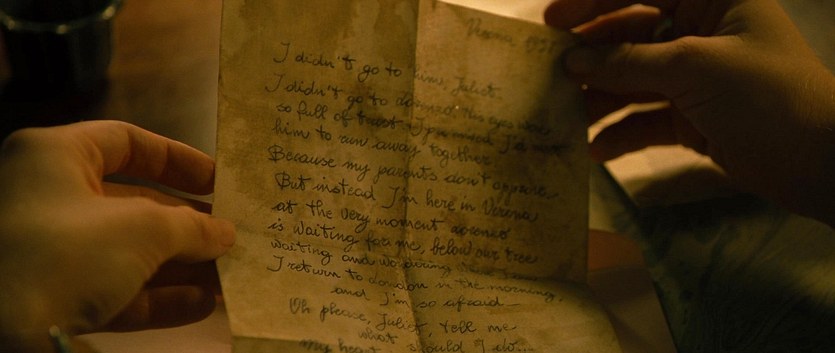 Verona
I didn't go to him, Juliet.
I didn't go to Lorenzo. His eyes were
so full of trust. I promised I'd meet
him to run away together
Because my parents don't approve
But instead I'm here in Verona
at the very moment Lorenzo
is waiting for me, below our tree
waiting and wondering
I return to London in the morning,
and I'm so afraid
Oh please, Juliet, tell me
what should I do...
My heart